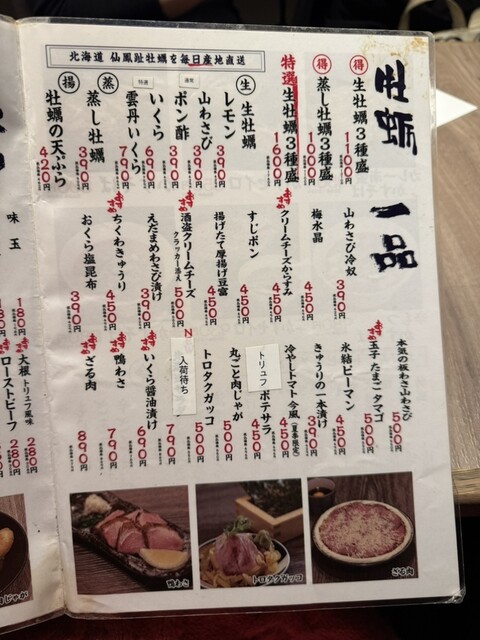 牡蛎 一品
得 生牡蠣3種盛 1100円
得 蒸し牡蠣3種盛 1000円
特選生牡蠣3種盛 1600円
北海道 仙鳳趾牡蠣を毎日産地直送
生 生牡蠣
レモン 390円
山わさび 390円
通常 ポン酢 390円
いくら 690円
特選 雲丹いくら 790円
蒸 蒸し牡蠣 390円
揚 牡蠣の天ぷら 420円
山わさび冷奴 390円
梅水晶 450円
クリームチーズからすみ 450円
すじポン 450円
揚げたて厚揚げ豆富 450円
酒盗クリームチーズ クラッカー添え 500円
えだまめわさび漬け 390円
ちくわきゅうり 450円
おくら塩昆布 390円
本気の板わさ山わさび 500円
玉子 たまごタマゴ 500円
氷結ピーマン 450円
きゅうりの一本漬け 390円
冷やしトマト 今風(夏季限定) 450円
トリュフ ポテサラ 450円
丸ごと肉じゃが 500円
トロタクガッコ 500円
入荷待ち 790円
いくら醤油漬け 690円
鴨わさ 790円
ざる肉 890円
鴨わさ
トロタクガッコ
ざる肉
味玉
180円
大根 トリュフ風味 280円
ローストビーフ 280円